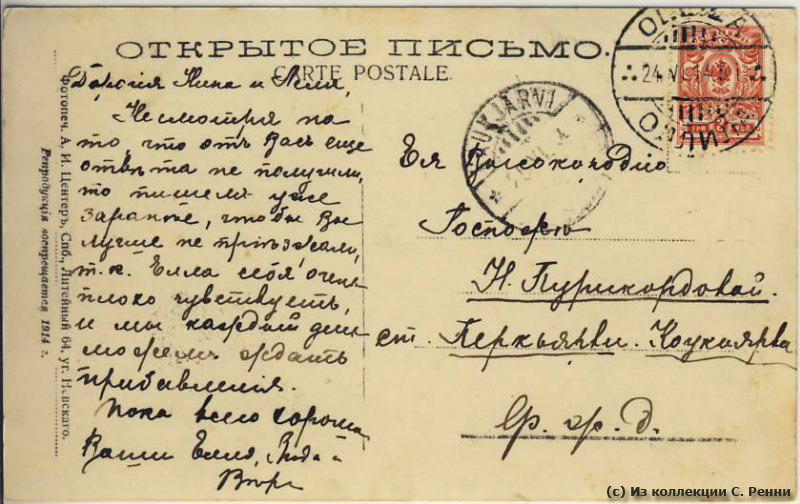 ОТКРЫТОЕ ПИСЬМО.
CARTE POSTALE.
Дорогія Нина и Леля,
Несмотря на
то, что отъ Васъ еще
отвѣта не получили,
то пишемъ уже
заранѣе, чтобы Вы
лучше не пріѣзжали,
т.к. Елла себя очень
плохо чувствуетъ,
и мы каждый день
можемъ ждать
прибавленія.
Пока всего хорошаго
Ваши Елла,
Ея Высокородію
Госпожѣ
Н. Пурикордовой.
ст. Перкьярви. Коукьярви
Фотопеч. А. И. Центеръ, Спб., Литейный 64, уг. Невскаго.
Репродукція воспрещается 1914 г.
KJÄRVI
24.VI.14
(c) Из коллекции С. Ренни